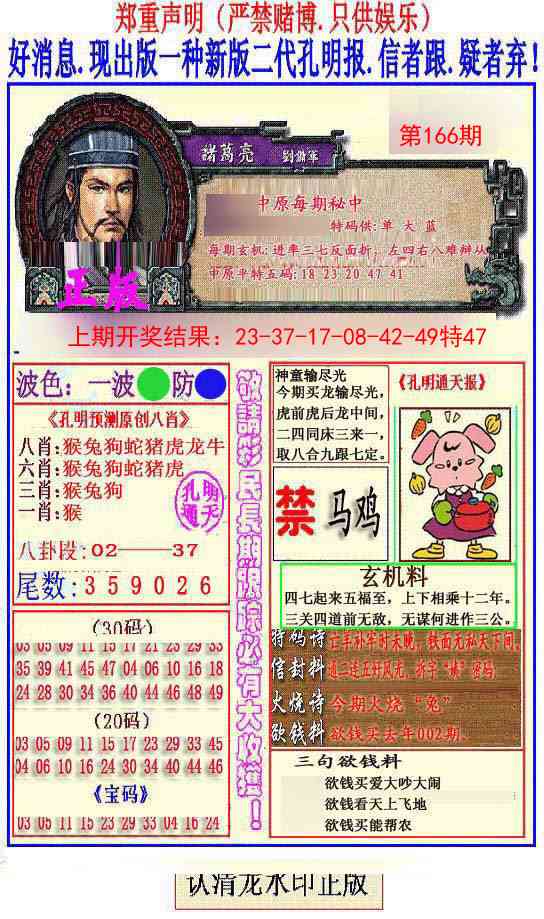 郑重声明（严禁赌博.只供娱乐）
好消息.现出版一种新版二代孔明报.信者跟.疑者弃！
諸葛亮 劉備軍
第166期
中原每期秘中
特码供:单 大 蓝
每期玄机:进率三七反面折。左四右八难辩从
中原平特五码:18 23 20 47 41
正版
上期开奖结果：23-37-17-08-42-49特47
波色：一波 防
《孔明预测原创八肖》
八肖:猴兔狗蛇猪虎龙牛
六肖:猴兔狗蛇猪虎
三肖:猴兔狗
一肖:猴
孔明
通天
八卦段:02——37
尾数:359026
(30码)
03 05 09 11 15 17 21 23 29 33
35 39 41 45 47 04 06 10 16 18
24 28 30 34 36 40 44 46 48 49
(20码)
03 05 09 11 15 17 23 29 33 45
04 06 10 16 24 30 34 40 44 46
《宝码》
03 05 11 15 23 29 33 04 16 24
敬請彩民長期跟踪必有大收獲！
神童输尽光
今期买龙输尽光，
虎前虎后龙中间，
二四同床三来一，
取八合九跟七定。
《孔明通天报》
禁 马鸡
玄机料
四七起来五福至，上下相乘十二年。
三关四道前无敌，无谋何进作三公。
特码诗 亡羊补牢时未晚，铁面无私天下间。
信封料
火烧诗 今期火烧“兔”
欲钱料 欲钱买去年002期。
三句欲钱料
欲钱买爱大吵大闹
欲钱看天上飞地
欲钱买能帮农
认清龙水印正版